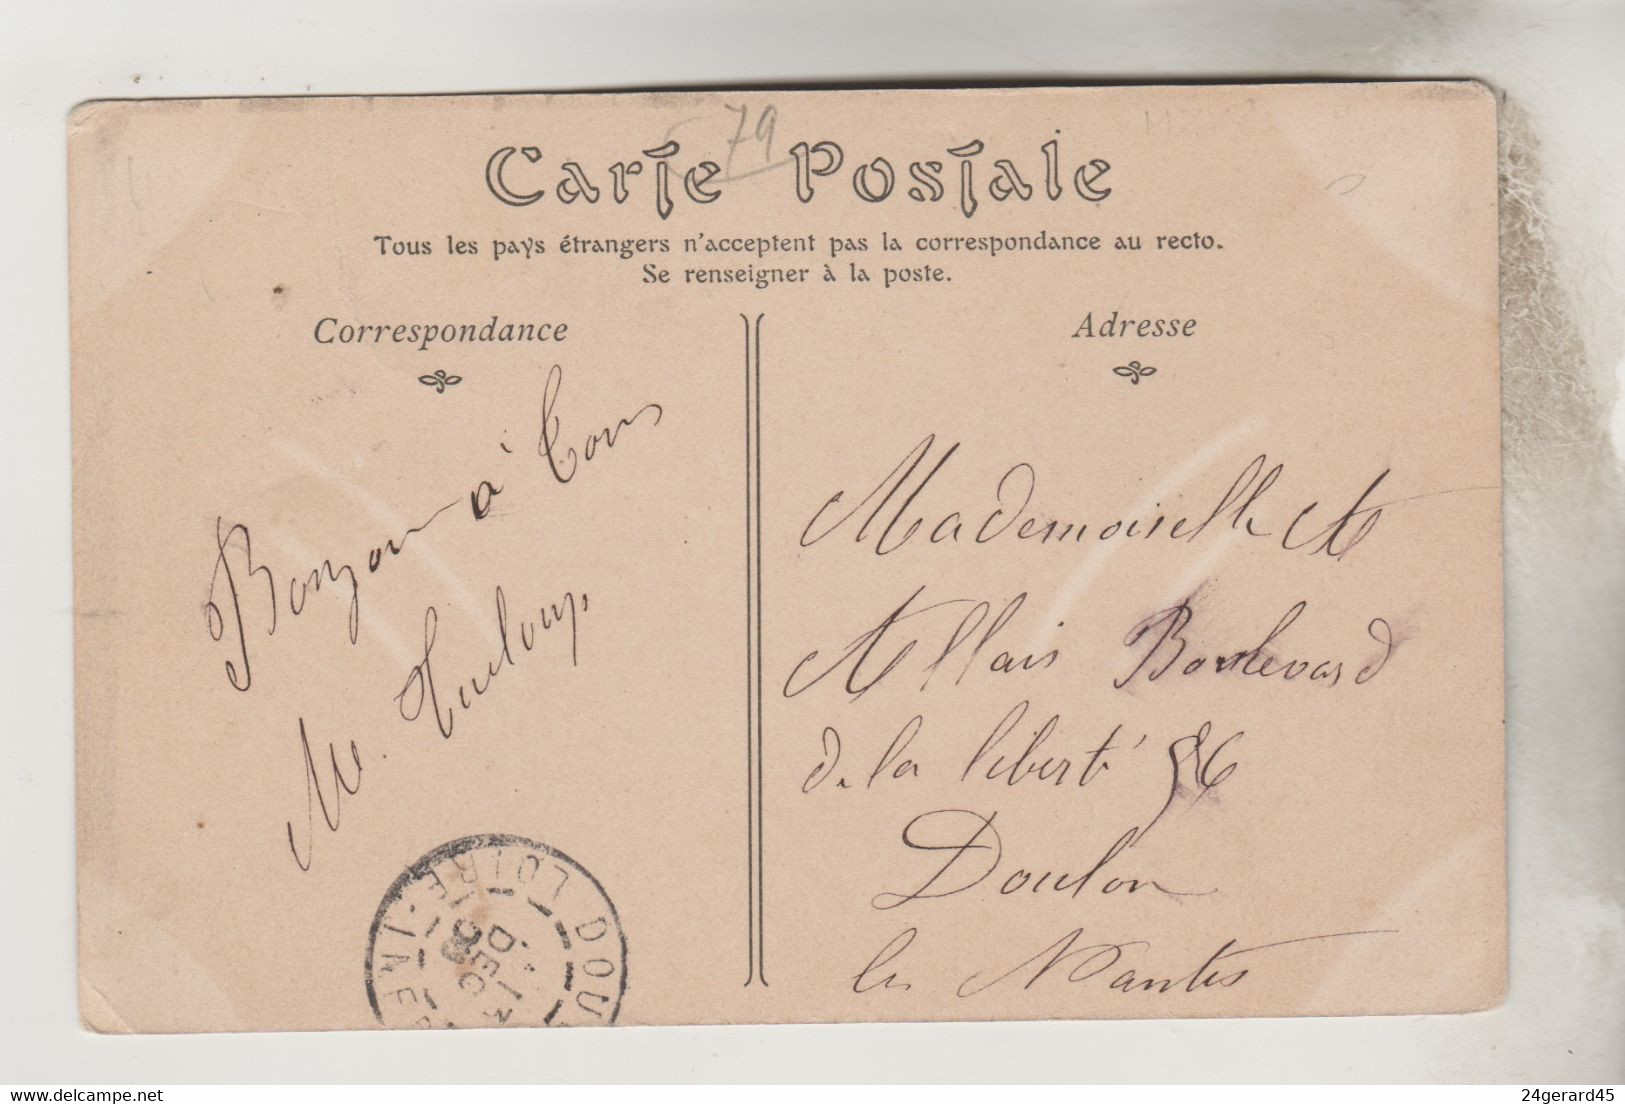 79
Carte Postale
Tous les pays étrangers n'acceptent pas la correspondance au recto.
Se renseigner à la poste.
Correspondance
Adresse
Bonjour à Tous
M.
Mademoiselle A
Allais Boulevard
de la liberté 86
Doulon
les Nantes
DOU LOIRE-
DEC
08
24gerard45
delcampe.net